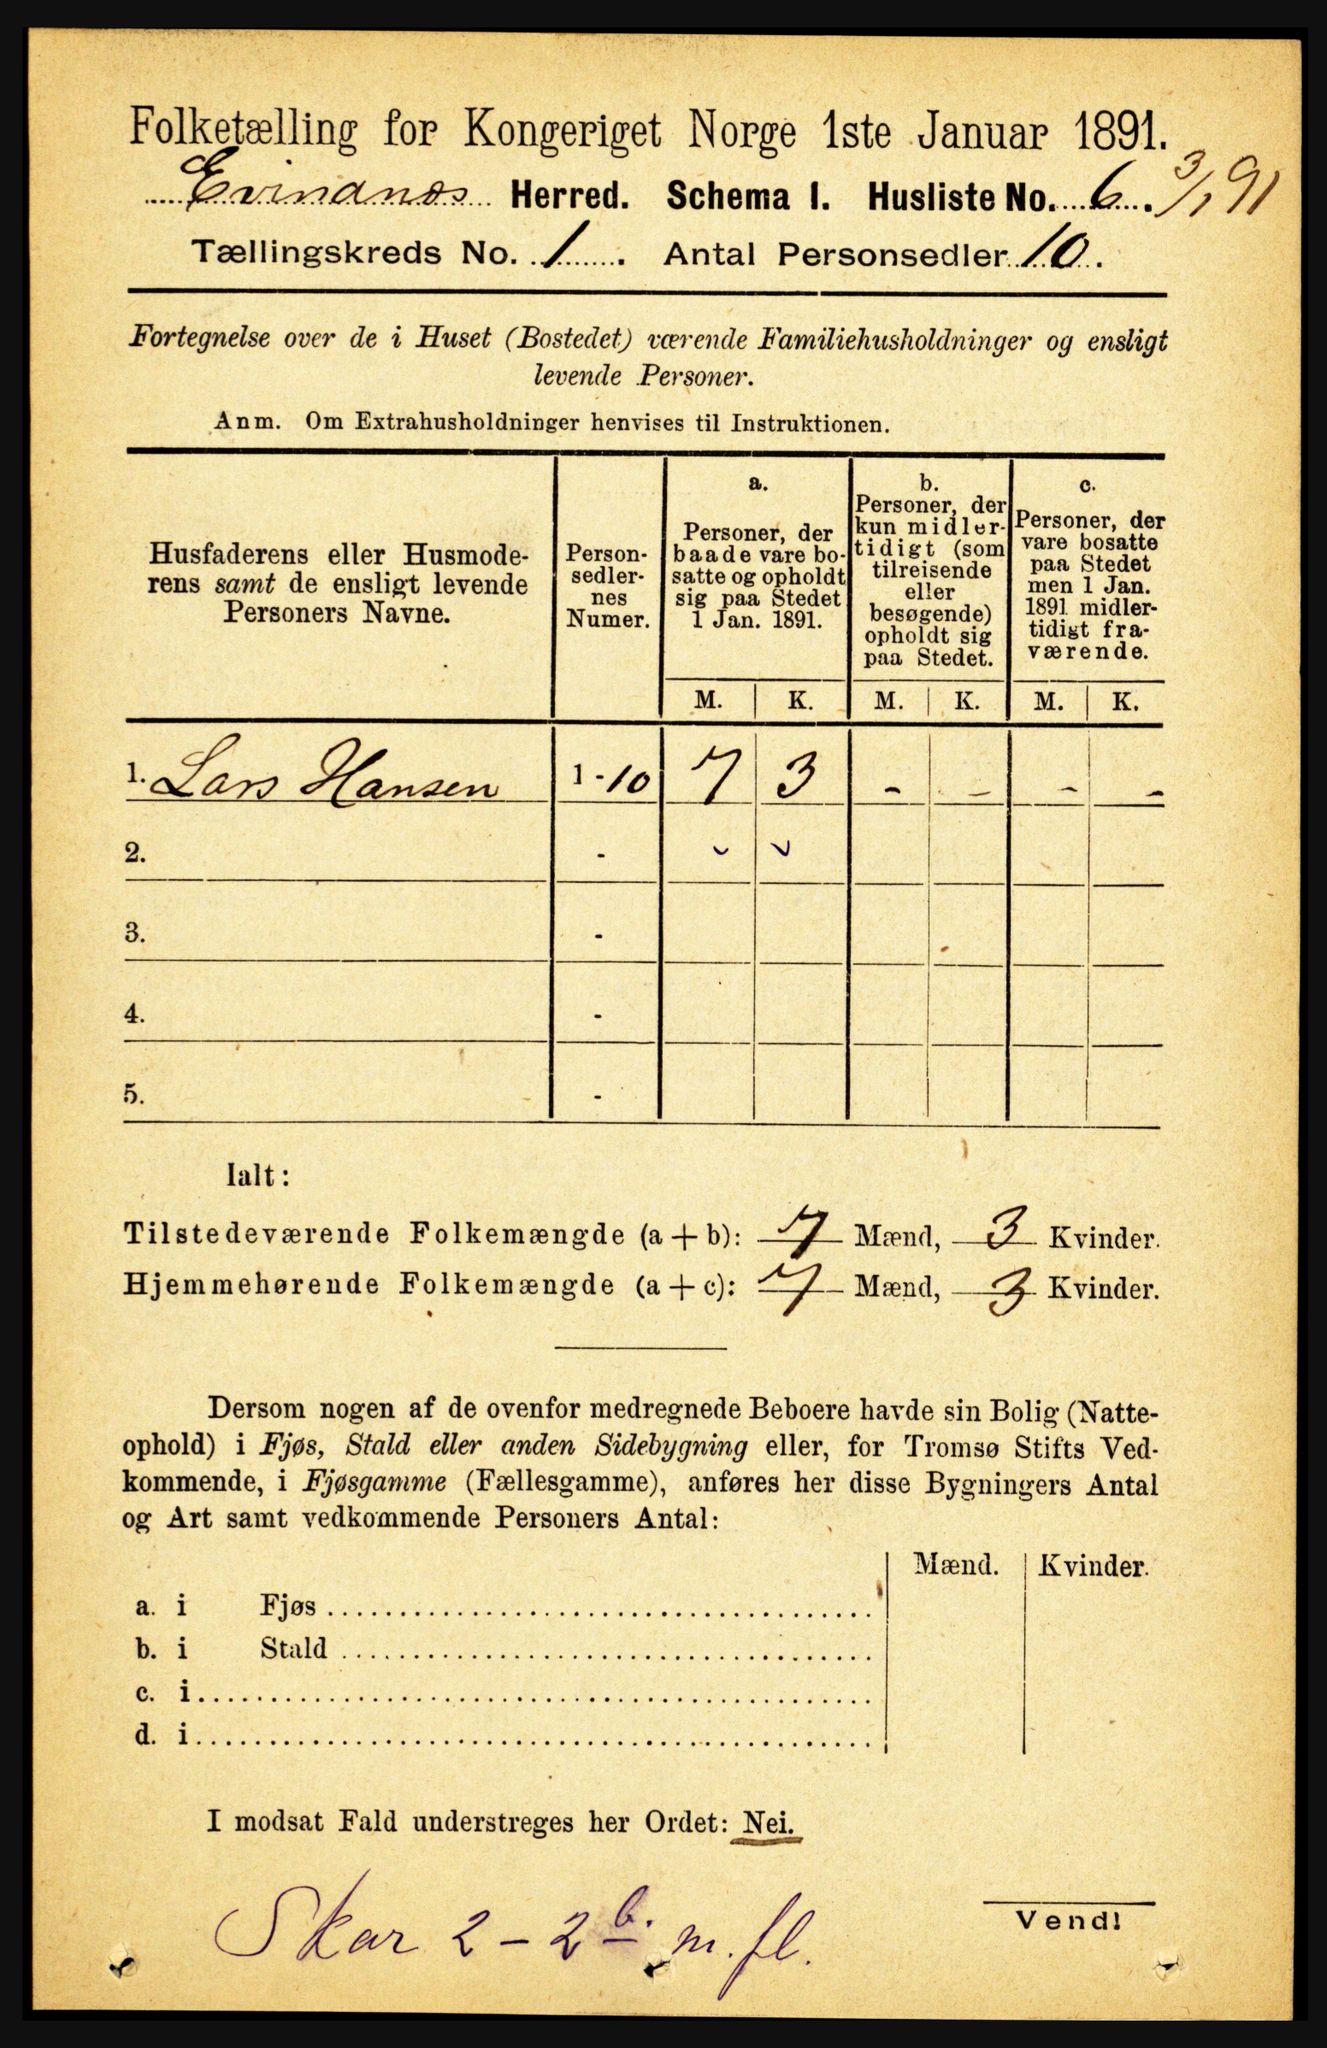 Folketælling for Kongeriget Norge 1ste Januar 1891.
Evindnæs Herred. Schema I. Husliste No. 6. 3/1 91
Tællingskreds No. 1. Antal Personsedler 10.
Fortegnelse over de i Huset (Bostedet) værende Familiehusholdninger og ensligt
levende Personer.
Anm. Om Extrahusholdninger henvises til Instruktionen.
Husfaderens eller Husmode-
rens samt de ensligt levende
Personers Navne.
Person-
sedler-
nes
Numer.
a.
Personer, der
baade vare bo-
satte og opholdt
sig paa Stedet
1 Jan. 1891.
b.
Personer, der
kun midler-
tidigt (som
tilreisende
eller
besøgende)
opholdt sig
paa Stedet.
c.
Personer, der
vare bosatte
paa Stedet
men 1 Jan.
1891 midler-
tidigt fra-
værende.
M. K. M. K. M. K.
1. Lars Hansen 1-10 7 3 - - - -
2. - ˅ ˅
3. -
4. -
5. -
Ialt:
Tilstedeværende Folkemængde (a + b): 7 Mænd, 3 Kvinder.
Hjemmehørende Folkemængde (a + c): 7 Mænd, 3 Kvinder.
Dersom nogen af de ovenfor medregnede Beboere havde sin Bolig (Natte-
ophold) i Fjøs, Stald eller anden Sidebygning eller, for Tromsø Stifts Ved-
kommende, i Fjøsgamme (Fællesgamme), anføres her disse Bygningers Antal
og Art samt vedkommende Personers Antal:
Mænd. Kvinder.
a. i Fjøs
b. i Stald
c. i
d. i
I modsat Fald understreges her Ordet: Nei.
Vend!
Skar 2 - 2 b. m. fl.